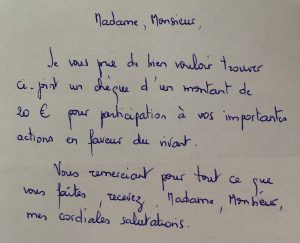 Madame, Monsieur,
Je vous prie de bien vouloir trouver
ci-joint un chèque d'un montant de
20 € pour participation à vos importantes
actions en faveur du vivant.
Vous remerciant pour tout ce que
vous faites, recevez, Madame, Monsieur,
mes cordiales salutations.